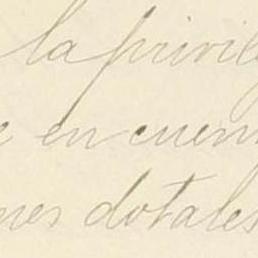 la privile
e en cuen
nes dotales